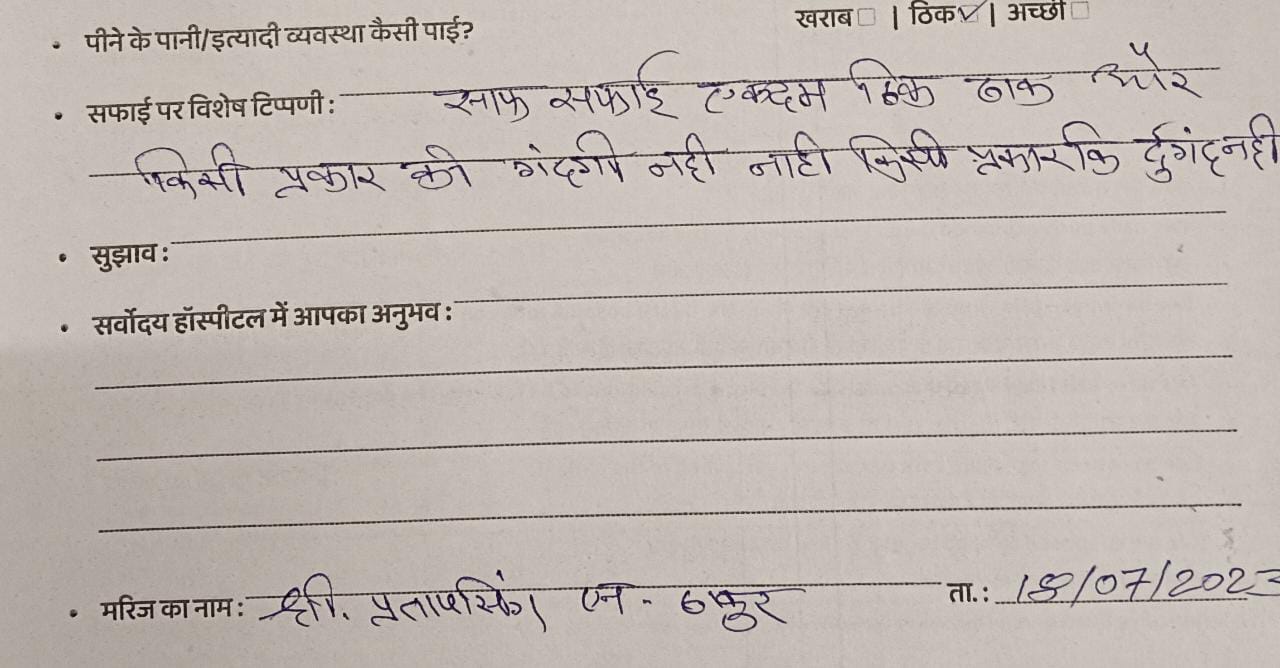 • पीने के पानी/इत्यादी व्यवस्था कैसी पाई? खराब☐ | ठिक☑ | अच्छी☐
• सफाई पर विशेष टिप्पणी : साफ सफाई एकदम ठिक ठाक और
किसी प्रकार की गंदगी नही नाही किसी प्रकारकि दुर्गंद नही
• सुझाव :
• सर्वोदय हॉस्पीटल में आपका अनुभव :
• मरिज का नाम : श्री. प्रतापसिंग एन. ठाकुर ता.: 18/07/2023